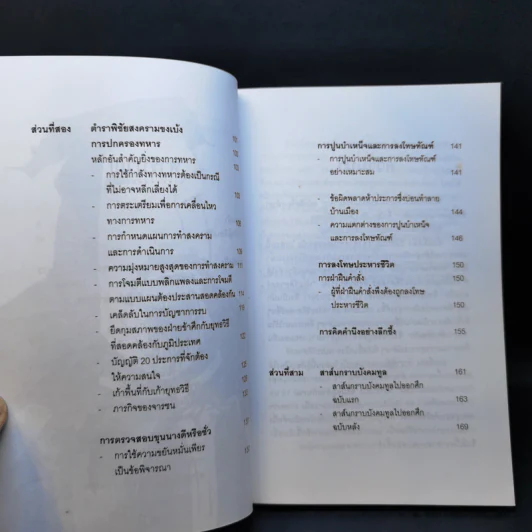 ส่วนที่สอง ตำราพิชัยสงครามขงเบ้ง
การปกครองทหาร
หลักอันสำคัญยิ่งของการทหาร
- การใช้กำลังทางทหารต้องเป็นกรณี
ที่ไม่อาจหลีกเลี่ยงได้
- การตระเตรียมเพื่อการเคลื่อนไหว
ทางการทหาร
- การกำหนดแผนการทำสงคราม
และการดำเนินการ
- ความมุ่งหมายสูงสุดของการทำสงคราม
- การโจมตีแบบพลิกแพลงและการโจมตี
ตามแบบแผนต้องประสานสอดคล้องกัน
- เคล็ดลับในการบัญชาการรบ
- ยึดกุมสภาพของฝ่ายข้าศึกกับยุทธวิธี
ที่สอดคล้องกับภูมิประเทศ
- บัญญัติ 20 ประการที่จักต้อง
ให้ความสนใจ
- เก้าพื้นที่กับเก้ายุทธวิธี
- ภารกิจของจารชน
การตรวจสอบขุนนางดีหรือชั่ว
- การใช้ความขยันหมั่นเพียร
เป็นข้อพิจารณา
การปูนบำเหน็จและการลงโทษทัณฑ์ 141
- การปูนบำเหน็จและการลงโทษทัณฑ์
อย่างเหมาะสม 141
- ข้อผิดพลาดห้าประการซึ่งบ่อนทำลาย
บ้านเมือง 144
- ความแตกต่างของการปูนบำเหน็จ
และการลงโทษทัณฑ์ 146
การลงโทษประหารชีวิต 150
การฝ่าฝืนคำสั่ง 150
- ผู้ที่ฝ่าฝืนคำสั่งพึงต้องถูกลงโทษ
ประหารชีวิต 150
การคิดคำนึงอย่างลึกซึ้ง 155
ส่วนที่สาม สาส์นกราบบังคมทูล 161
- สาส์นกราบบังคมทูลไปออกศึก
ฉบับแรก 163
- สาส์นกราบบังคมทูลไปออกศึก
ฉบับหลัง 169